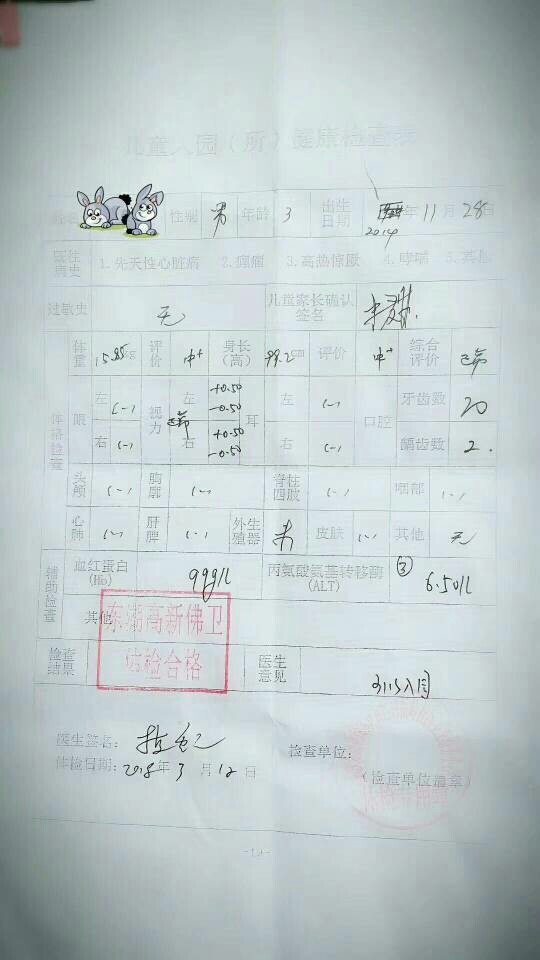 儿童入园（所）健康检查表
性别 男 年龄 3 出生日期 2014年11月28日
既往病史 1.先天性心脏病 2.癫痫 3.高热惊厥 4.哮喘 5.其他
过敏史 无 儿童家长确认签名
体格检查 体重 15.85kg 评价 中+ 身长（高） 99.2cm 评价 中+ 综合评价
眼 左 (-) 视力 左 +0.50 -0.50 耳 左 (-) 口腔 牙齿数 20
右 (-) 右 +0.50 -0.50 右 (-) 龋齿数 2
头颅 (-) 胸廓 (-) 脊柱四肢 (-) 咽部 (-)
心肺 (-) 肝脾 (-) 外生殖器 未 皮肤 (-) 其他 无
辅助检查 血红蛋白(Hb) 99g/L 丙氨酸氨基转移酶(ALT) ③ 6.50/L
其他
东湖高新佛卫
体检合格
检查结果 医生意见 可以入园
医生签名： 检查单位：
体检日期：2018年3月12日 （检查单位盖章）